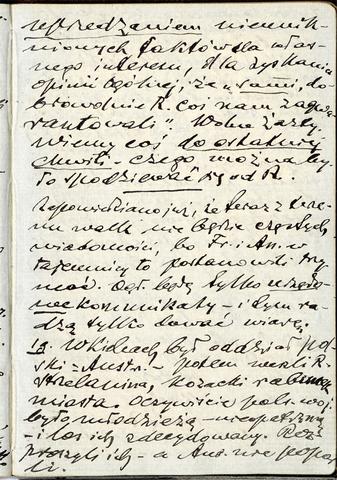 uprzedzaniem niemnik-
nionych faktów dla włas-
nego interesu, dla zyskania
opinii ogólnej, że „sami, do-
browolnie R. coś nam zagwa-
rantowali". Wolne żarty.
Wiemy coś do ostatniej
chwili - czego można by-
ło spodziewać się od R.
Zapowiedziano już, że teraz z tere-
nu walk nie będzie częstych
wiadomości, bo Fr. i An. w
tajemnicy to postanowili trzy-
mać. Ogł. będą tylko urzędo-
we komunikaty - i tym ra-
dzą tylko dawać wiarę.
był oddział pol-
ski - Austr. - potem weszli R.
strzelanina, kozacki rabunek
miasta. Oczywiście pols. woj.
było młodzieżą -
- i los ich zdecydowany. Roz-
proszyli ich - a Aus. nie popar-
li.